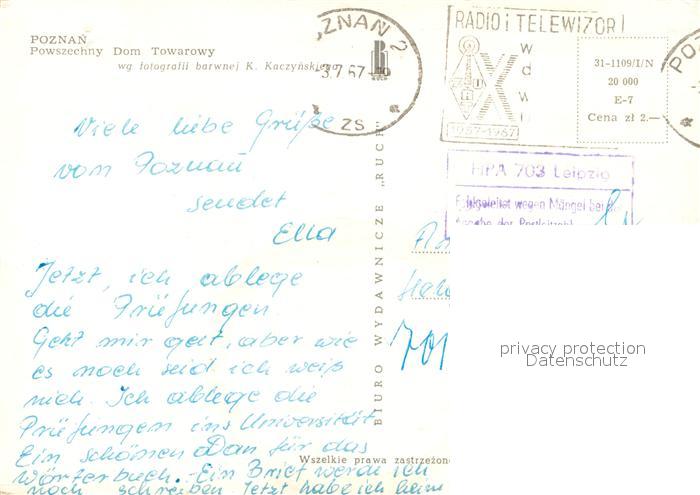 POZNAŃ
Powszechny Dom Towarowy
wg fotografii barwnej K. Kaczyńskiego
POZNAŃ 2
-3.7.67-19
ZS
RADIO i TELEWIZORI
1957-1967
31-1109/I/N
20 000
E-7
Cena zł 2.—
HPA 703 Leipzig
Fehlgeleitet wegen Mängel bei
Angabe der Postleitzahl
Viele liebe Grüße
von Poznań
sendet
Ella
Jetzt, ich ablege
die Prüfungen
Geht mir gut, aber wie
es noch seid ich weiß
nich. Ich ablege die
Prüfungen ins Universität
Ein schönen Dan für das
Wörterbuch. Ein Brief werde ich
noch schreiben Jetzt habe ich keine
BIURO WYDAWNICZE „RUCH"
Wszelkie prawa zastrzeżone
701
privacy protection
Datenschutz